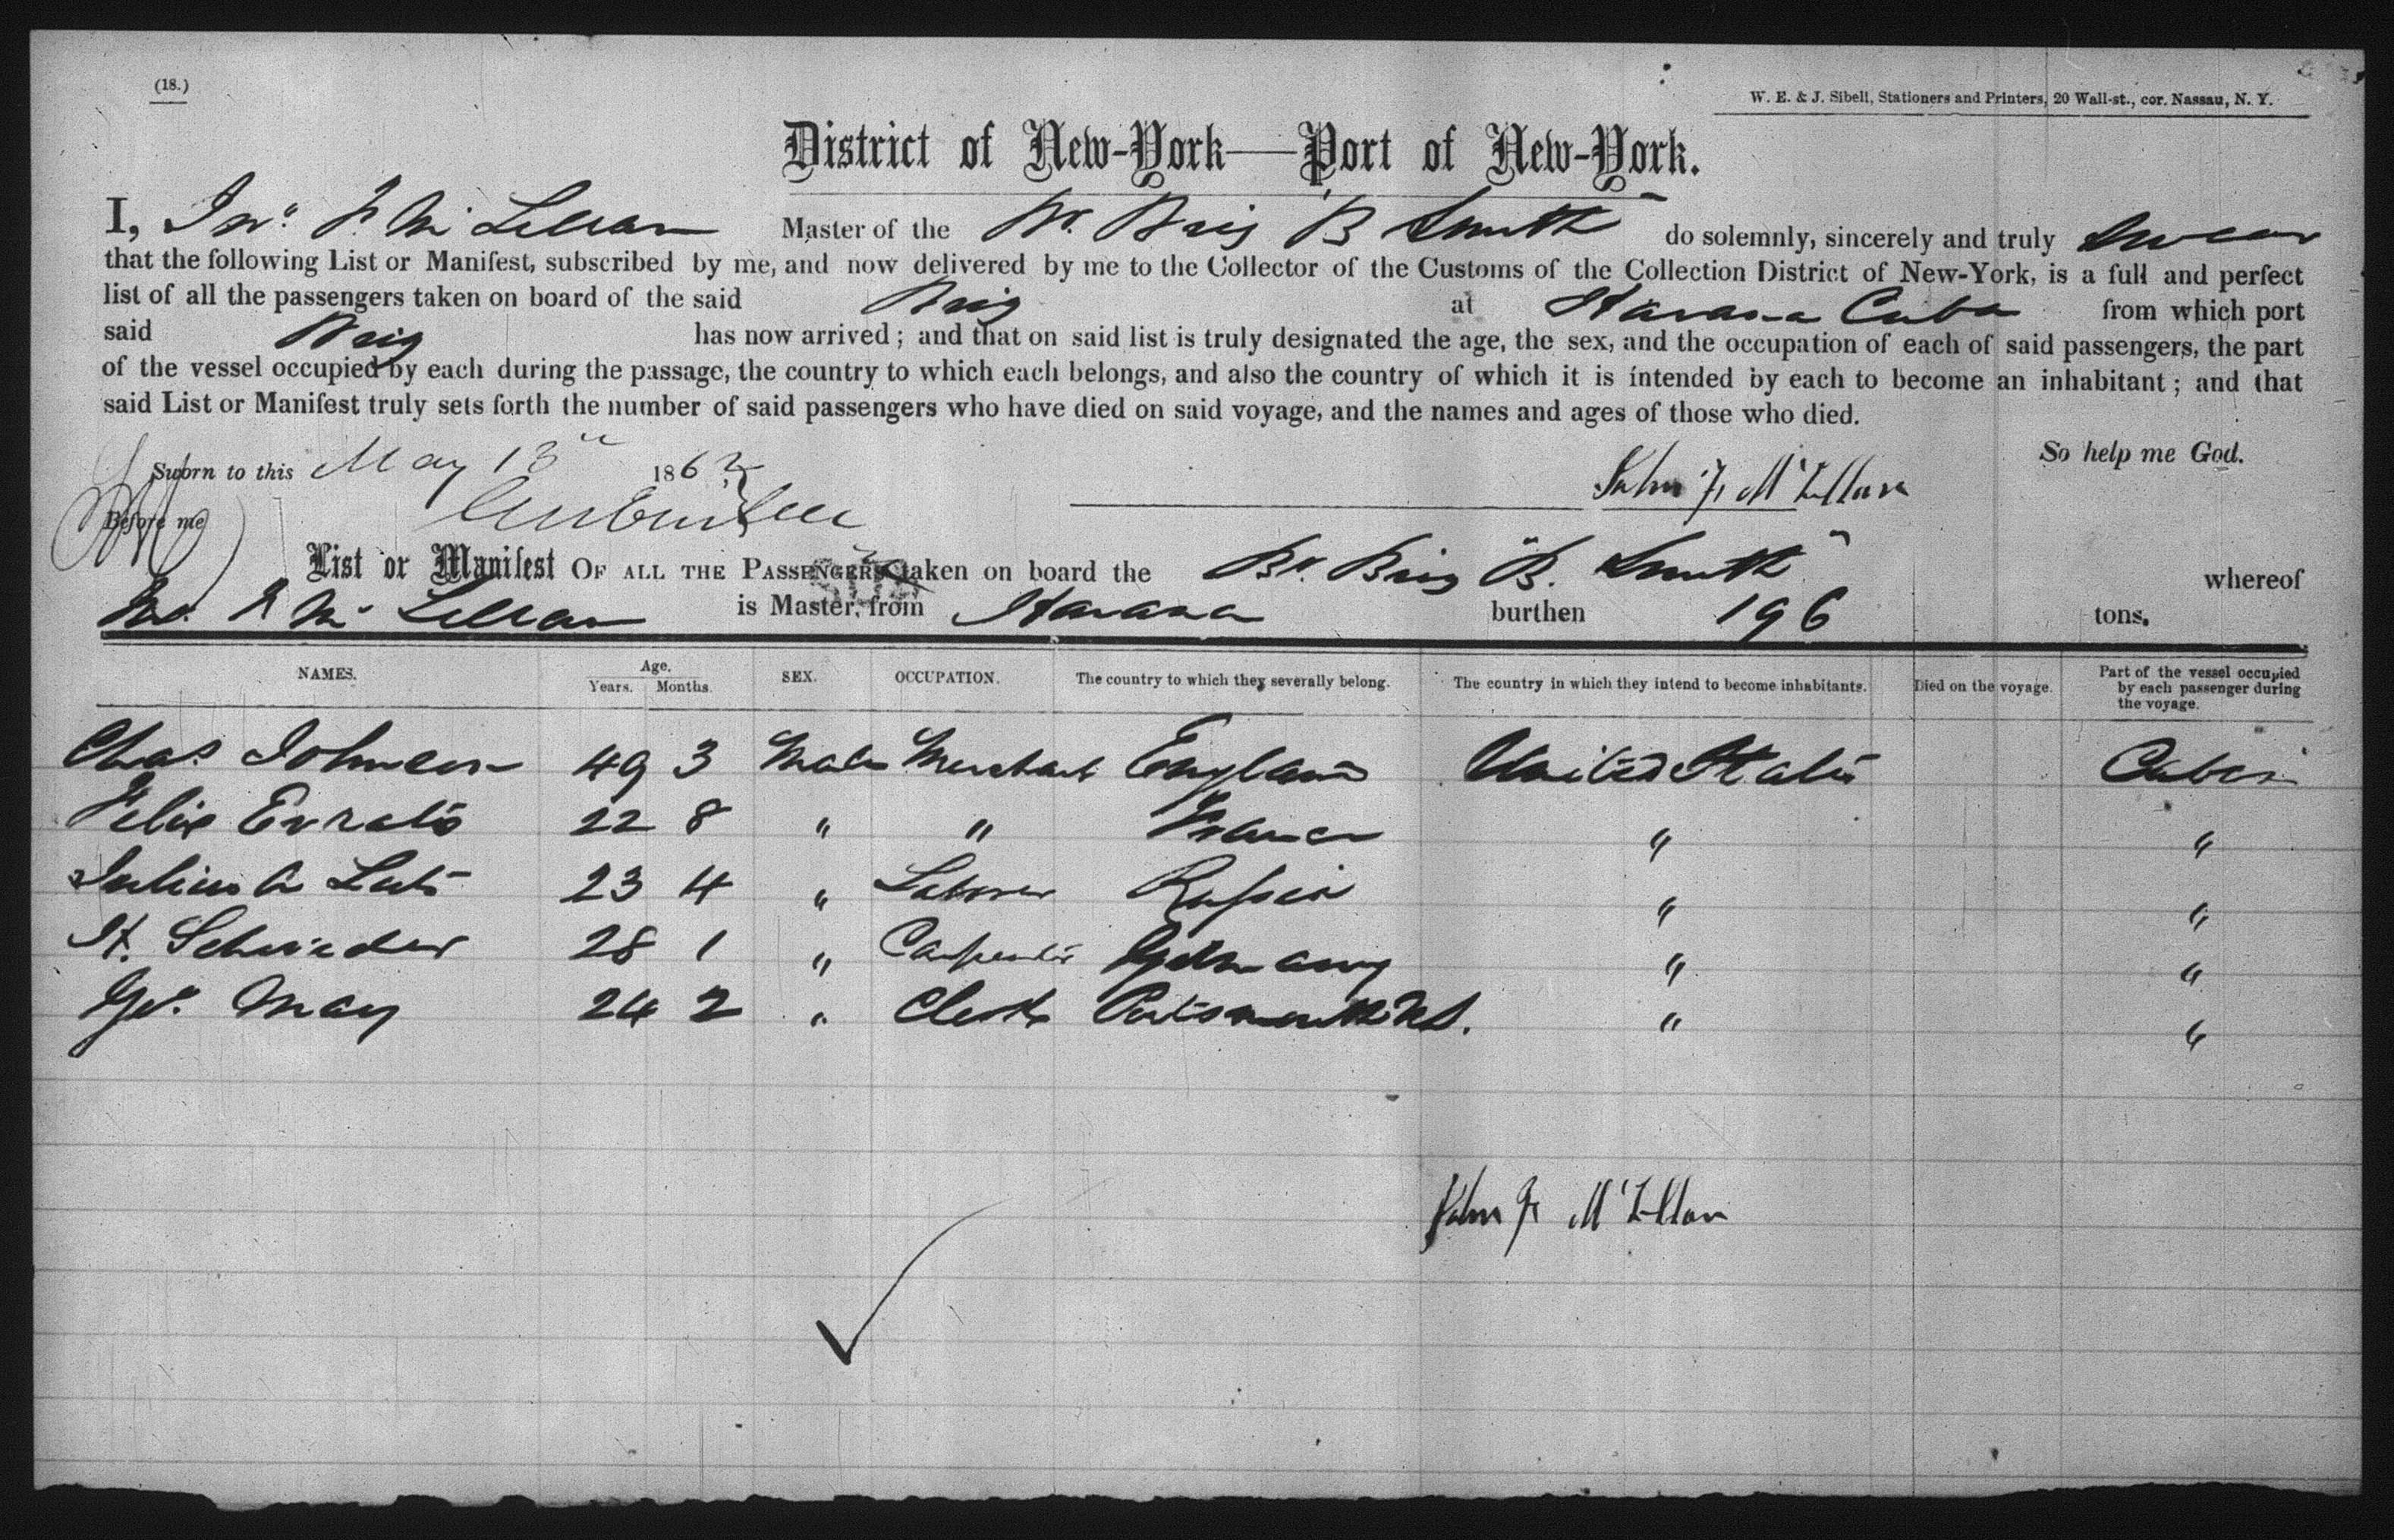 (18.)
W. E. & J. Sibell, Stationers and Printers, 20 Wall-st., cor. Nassau, N. Y.
District of New-York—Port of New-York.
I, Jno. F. Mc Lellan Master of the Br. Brig "B Smith" do solemnly, sincerely and truly Swear
that the following List or Manifest, subscribed by me, and now delivered by me to the Collector of the Customs of the Collection District of New-York, is a full and perfect
list of all the passengers taken on board of the said Brig at Havana Cuba from which port
said Brig has now arrived; and that on said list is truly designated the age, the sex, and the occupation of each of said passengers, the part
of the vessel occupied by each during the passage, the country to which each belongs, and also the country of which it is intended by each to become an inhabitant; and that
said List or Manifest truly sets forth the number of said passengers who have died on said voyage, and the names and ages of those who died.
So help me God.
Sworn to this May 13 186
John F. McLellan
Before me
List or Manifest OF ALL THE PASSENGERS taken on board the Br. Brig "B. Smith" whereof
Jno. F Mc Lellan is Master, from Havana burthen 196 tons.
NAMES. Age. Years. Months. SEX. OCCUPATION. The country to which they severally belong. The country in which they intend to become inhabitants. Died on the voyage. Part of the vessel occupied by each passenger during the voyage.
Chas Johnson 49 3 Male Merchant England United States Cabin
Felix 22 8 " " France " "
Julius 23 4 " Laborer Russia " "
H. Schrieder 28 1 " Carpenter Germany " "
Geo. May 24 2 " Clerk Portsmouth " "
John F McLellan